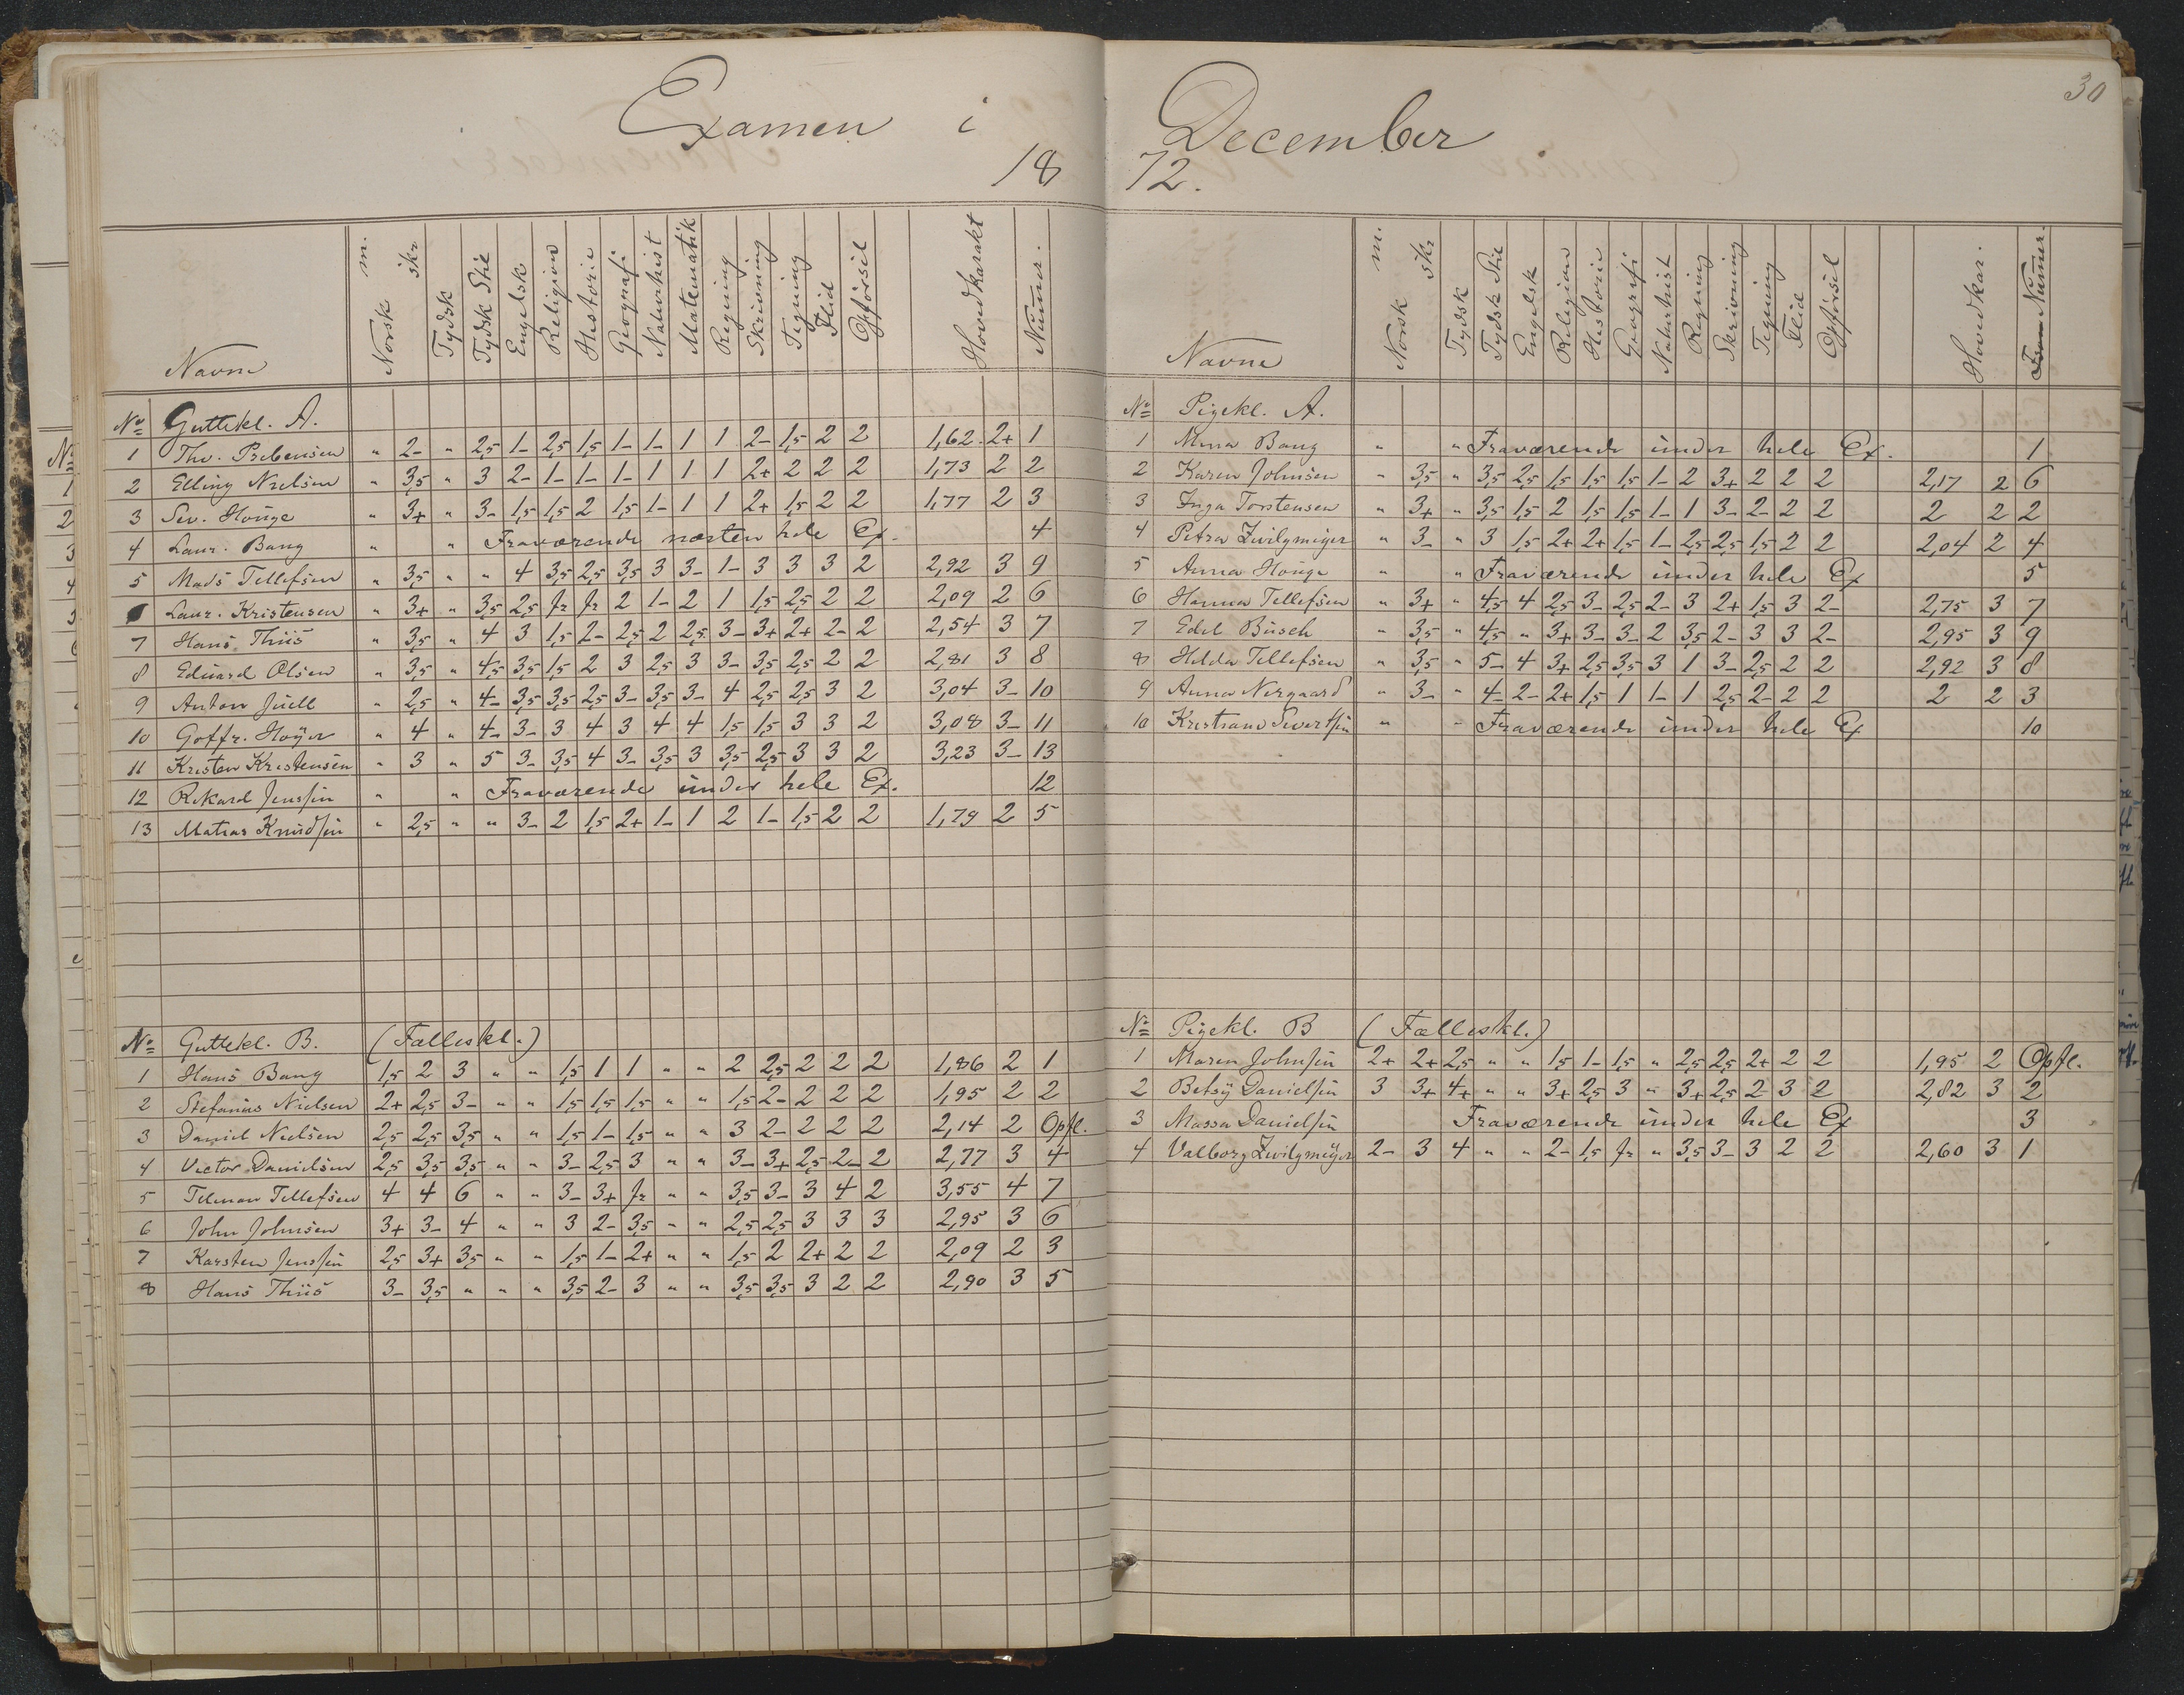 Examen i
18
Navne Norsk m. skr Tydsk Tydsk Stil Engelsk Religion Historie Geografi Naturhist Matematik Regning Skrivning Tegning Flid Opførsel Hovedkarakt Numer.
No Guttekl. A.
1 Thv. Prebensen " 2- " 2,5 1- 2,5 1,5 1- 1- 1 1 2- 1,5 2 2 1,62 2+ 1
2 Elling Nielsen " 3,5 " 3 2- 1- 1- 1- 1 1 1 2+ 2 2 2 1,73 2 2
3 Sev. Houge " 3+ " 3- 1,5 1,5 2 1,5 1- 1 1 2+ 1,5 2 2 1,77 2 3
4 Laur. Bang " " Fraværende næsten hele Ex. 4
5 Mads Tellefsen " 3,5 " " 4 3,5 2,5 3,5 3 3- 1- 3 3 3 2 2,92 3 9
6 Laur. Kristensen " 3+ " 3,5 2,5 fr fr 2 1- 2 1 1,5 2,5 2 2 2,09 2 6
7 Hans Thiis " 3,5 " 4 3 1,5 2- 2,5 2 2,5 3- 3+ 2+ 2- 2 2,54 3 7
8 Eduard Olsen " 3,5 " 4,5 3,5 1,5 2 3 2,5 3 3- 3,5 2,5 2 2 2,81 3 8
9 Anton Juell " 2,5 " 4- 3,5 3,5 2,5 3- 3,5 3- 4 2,5 2,5 3 2 3,04 3- 10
10 Goffr. Høyer " 4 " 4- 3- 3 4 3 4 4 1,5 1,5 3 3 2 3,08 3- 11
11 Kristen Kristensen " 3 " 5 3- 3,5 4 3- 3,5 3 3,5 2,5 3 3 2 3,23 3- 13
12 Rikard Jenssen " " Fraværende under hele Ex. 12
13 Matias Knudsen " 2,5 " " 3- 2 1,5 2+ 1- 1 2 1- 1,5 2 2 1,79 2 5
No Guttekl. B. (Fælleskl.)
1 Hans Bang 1,5 2 3 " " 1,5 1 1 " " 2 2,5 2 2 2 1,86 2 1
2 Stefanus Nielsen 2+ 2,5 3- " " 1,5 1,5 1,5 " " 1,5 2- 2 2 2 1,95 2 2
3 Daniel Nielsen 2,5 2,5 3,5 " " 1,5 1- 1,5 " " 3 2- 2 2 2 2,14 2 Opfl.
4 Victor Danielsen 2,5 3,5 3,5 " " 3- 2,5 3 " " 3- 3+ 2,5 2- 2 2,77 3 4
5 Telman Tellefsen 4 4 6 " " 3- 3+ fr " " 3,5 3- 3 4 2 3,55 4 7
6 John Johnsen 3+ 3- 4 " " 3 2- 3,5 " " 2,5 2,5 3 3 3 2,95 3 6
7 Karsten Jenssen 2,5 3+ 3,5 " " 1,5 1- 2+ " " 1,5 2 2+ 2 2 2,09 2 3
8 Hans Thiis 3- 3,5 " " " 3,5 2- 3 " " 3,5 3,5 3 2 2 2,90 3 5
30
December
72.
Navne Norsk m. skr Tydsk Tydsk Stil Engelsk Religion Historie Geografi Naturhist Regning Skrivning Tegning Flid Opførsel Hovedkar. Numer.
No Pigekl. A.
1 Mina Bang " " Fraværende under hele Ex. 1
2 Karen Johnsen " 3,5 " 3,5 2,5 1,5 1,5 1,5 1- 2 3+ 2 2 2 2,17 2 6
3 Inga Torstensen " 3+ " 3,5 1,5 2 1,5 1,5 1- 1 3- 2- 2 2 2 2 2
4 Petra Zwilgmeÿer " 3- " 3 1,5 2+ 2+ 1,5 1- 2,5 2,5 1,5 2 2 2,04 2 4
5 Anna Houge " " Fraværende under hele Ex 5
6 Hanna Tellefsen " 3+ " 4,5 4 2,5 3- 2,5 2- 3 2+ 1,5 3 2- 2,75 3 7
7 Edel Busch " 3,5 " 4,5 " 3+ 3- 3- 2 3,5 2- 3 3 2- 2,95 3 9
8 Helda Tellefsen " 3,5 " 5- 4 3+ 2,5 3,5 3 1 3- 2,5 2 2 2,92 3 8
9 Anna Nergaard " 3- " 4- 2- 2+ 1,5 1 1- 1 2,5 2- 2 2 2 2 3
10 Kristiane Sivertsen " " Fraværende under hele Ex 10
No Pigekl. B (Fælleskl.)
1 Maren Johnsen 2+ 2+ 2,5 " " 1,5 1- 1,5 " 2,5 2,5 2+ 2 2 1,95 2 Opfl.
2 Betsÿ Danielsen 3 3+ 4+ " " 3+ 2,5 3 " 3+ 2,5 2 3 2 2,82 3 2
3 Massa Danielsen Fraværende under hele Ex 3
4 Valborg Zwilgmeÿer 2- 3 4 " " 2- 1,5 fr " 3,5 3- 3 2 2 2,60 3 1